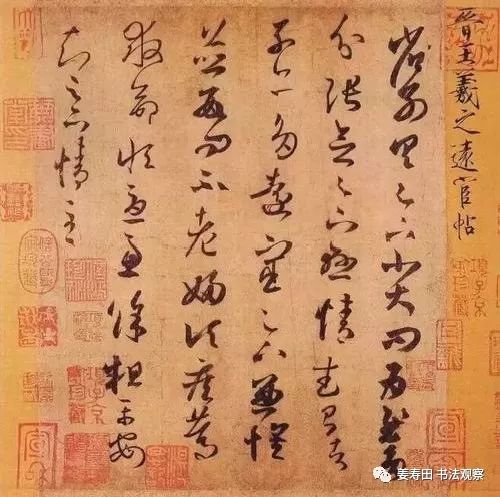 晉王羲之遠宦帖
省別具足下小大問為慰多
分張念足下懸情武昌諸
子亦多遠宦足下兼懷
並數問不老婦頃疾篤
救命恒憂慮餘粗平安
知足下情至
姜寿田 书法观察